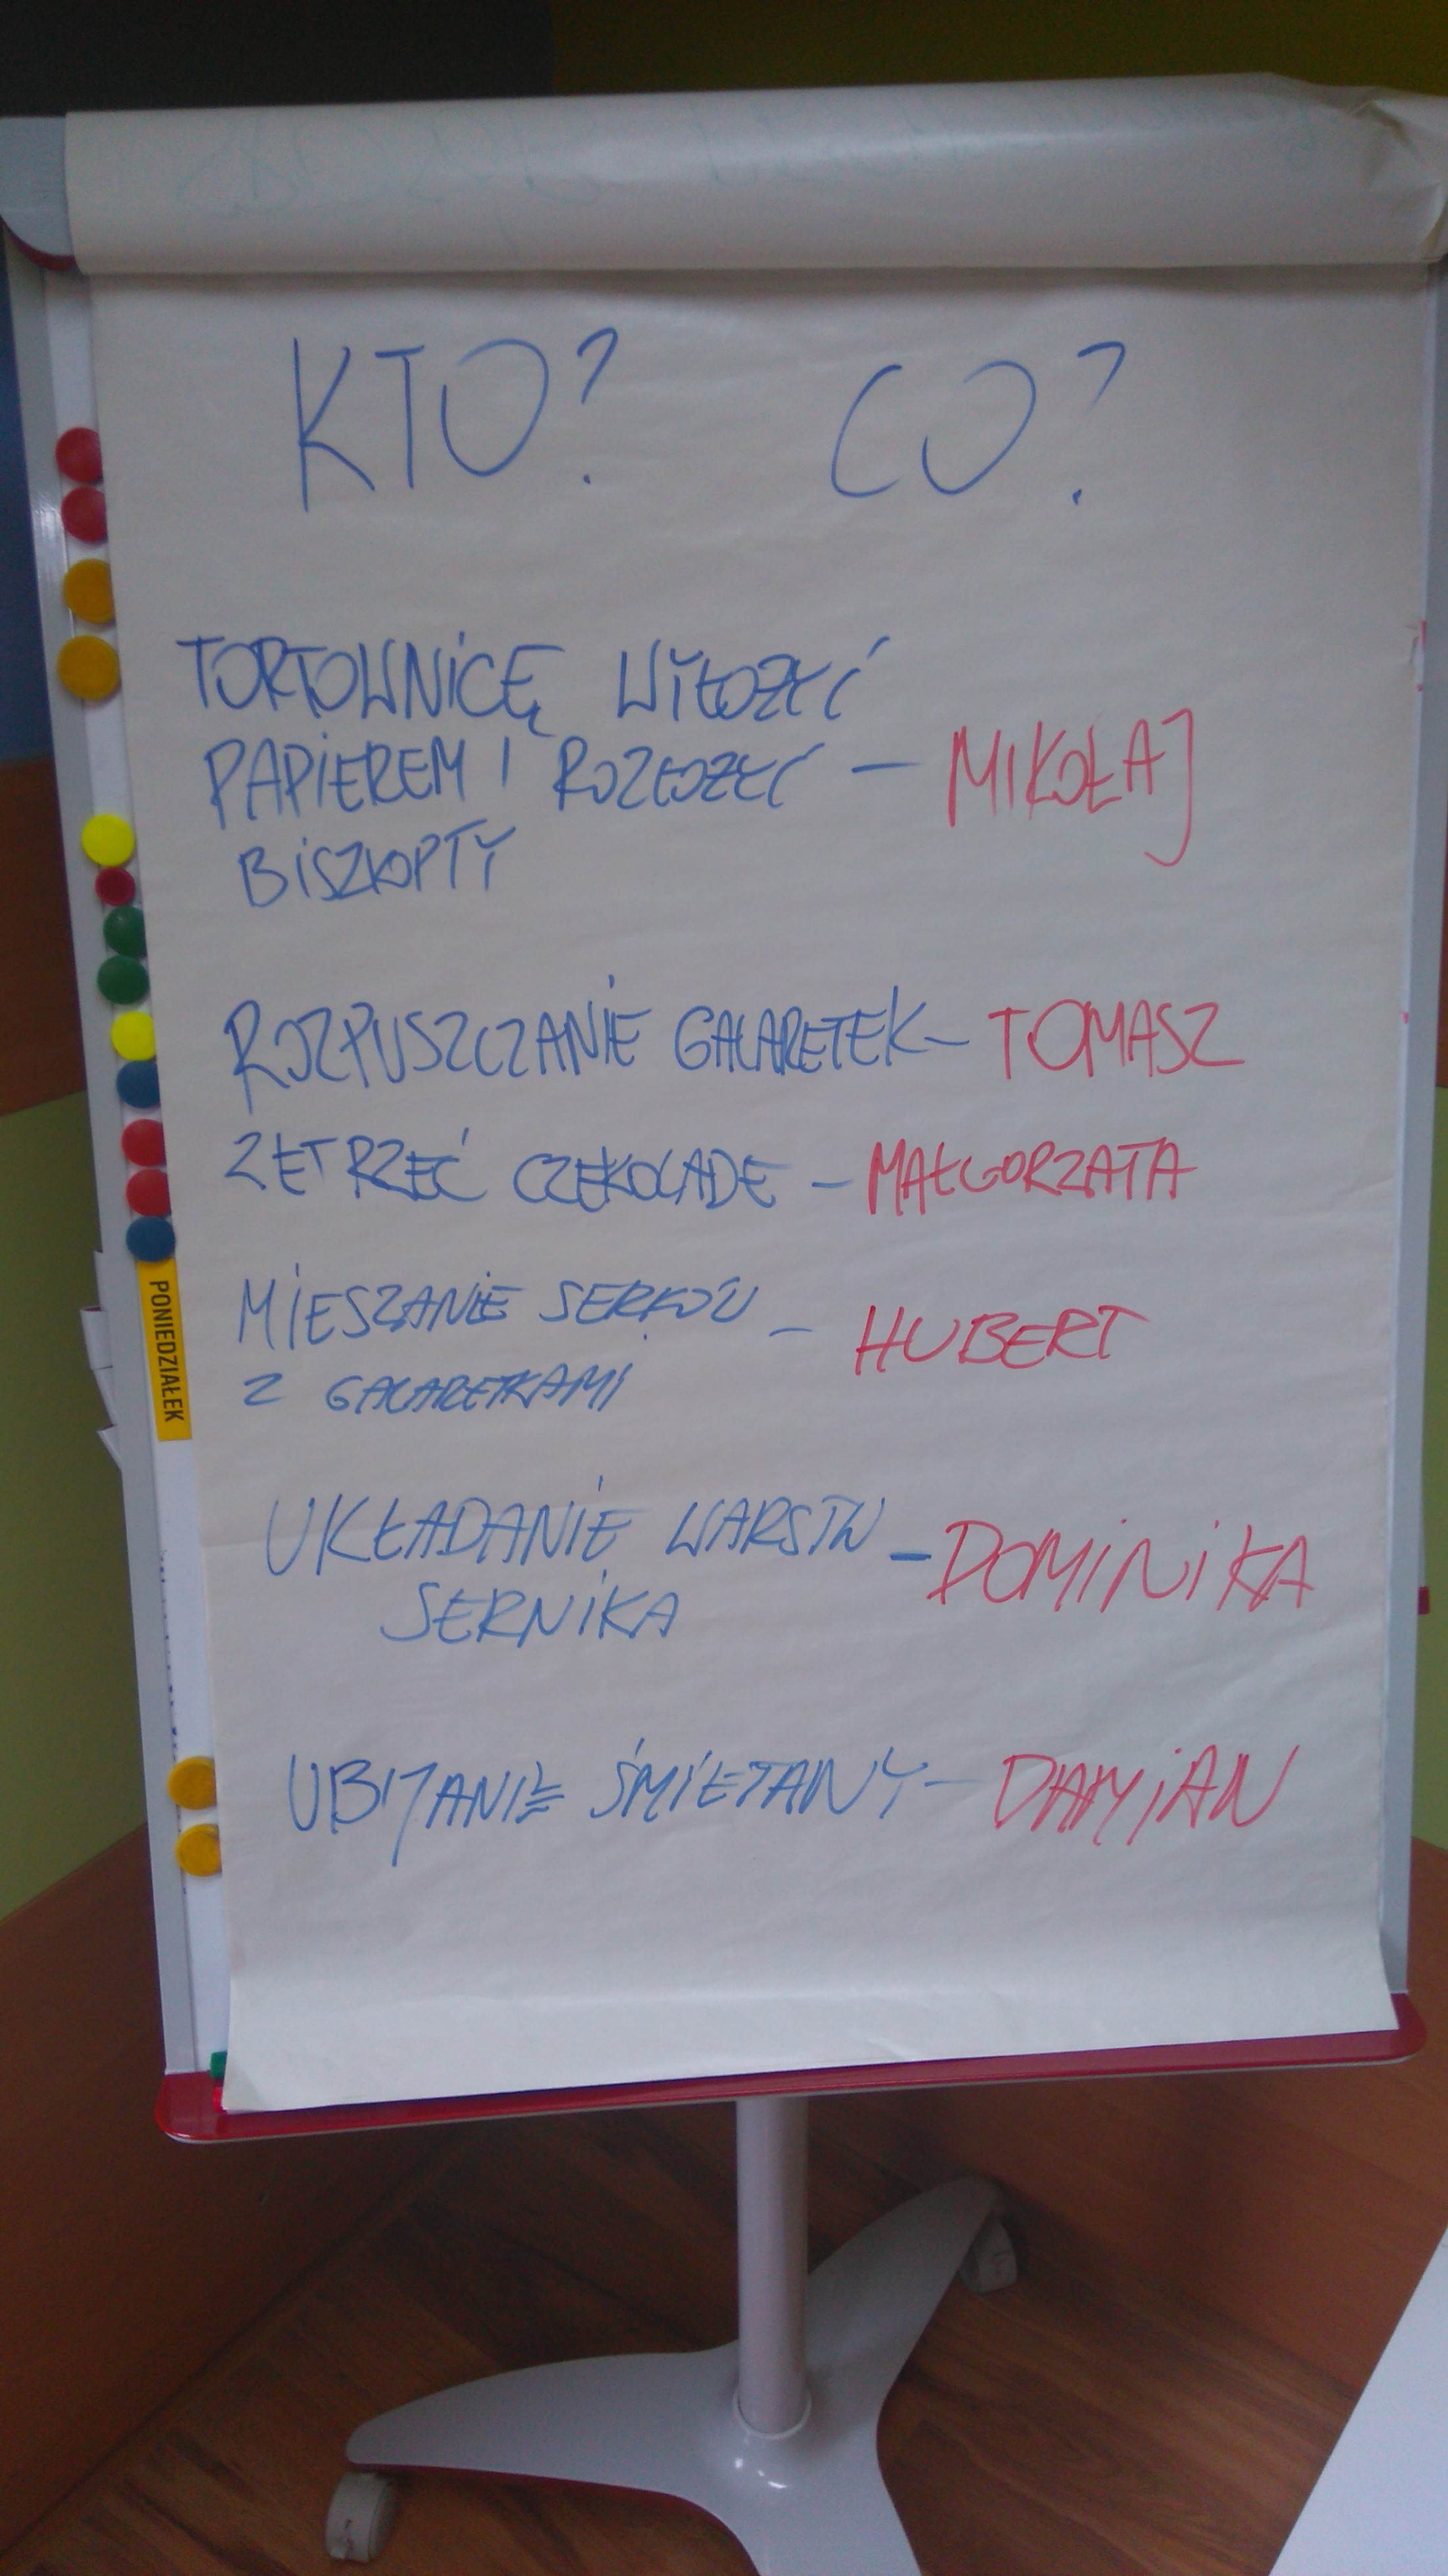 KTO? CO?
TORTOWNICĘ WYŁOŻYĆ
PAPIEREM I ROZŁOŻYĆ – MIKOŁAJ
BISZKOPTY
ROZPUSZCZANIE GALARETEK – TOMASZ
ZETRZEĆ CZEKOLADE – MAŁGORZATA
MIESZANIE SERKÓW – HUBERT
Z GALARETKAMI
PONIEDZIAŁEK
UKŁADANIE WARSTW – DOMINIKA
SERNIKA
UBIJANIE ŚMIETANY – DAMIAN